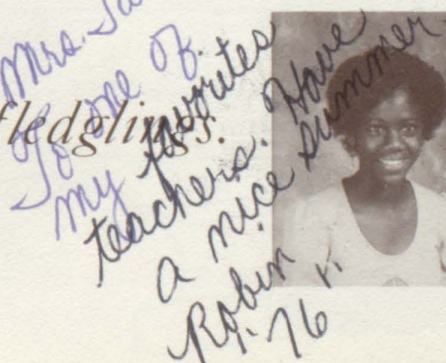 Mrs.
To one of
my favorites
teachers. Have
a nice summer
Robin K.
'76
fledglings.